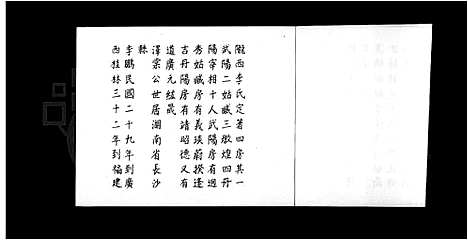 隴西李氏定著四房其一
武陽二姑臧三敦煌四丹
陽宰相十人武陽房有迥
秀姑臧房有義琰蔚揆逢
吉丹陽房有靖昭德又有
道廣元紘晟
澤宗公世居湖南省長沙
縣
李鵬民國二十九年到廣
西桂林三十二年到福建